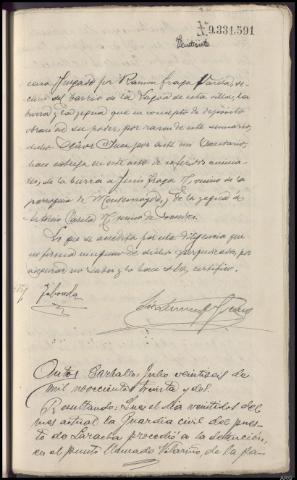 9.331.591
Veintisiete
este Juzgado por Ramón Fraga Varela, ve-
cino del barrio de la de esta villa, la
burra y la yegua que en concepto de depósito
obraban en su poder, por razón de este sumario,
dicho Señor Juez por ante mi Secretario,
hace entrega en este acto de referidos anima-
les, de la burra a Jesús Fraga vecino de la
parroquia de y de la yegua á
Antonio vecino de
Lo que se acredita por esta diligencia que
no firma ninguno de dichos perjudicados por
asegurar no saber y lo hace el Sr. certifico.
Taboada
Auto: Carballo, Julio veintiseis de
mil novecientos treinta y dos
Resultando: Que el día veintidos del
mes actual la Guardia civil del pues-
to de Laracha procedió a la detención,
en el punto Vilariño, de la pa-
ARG